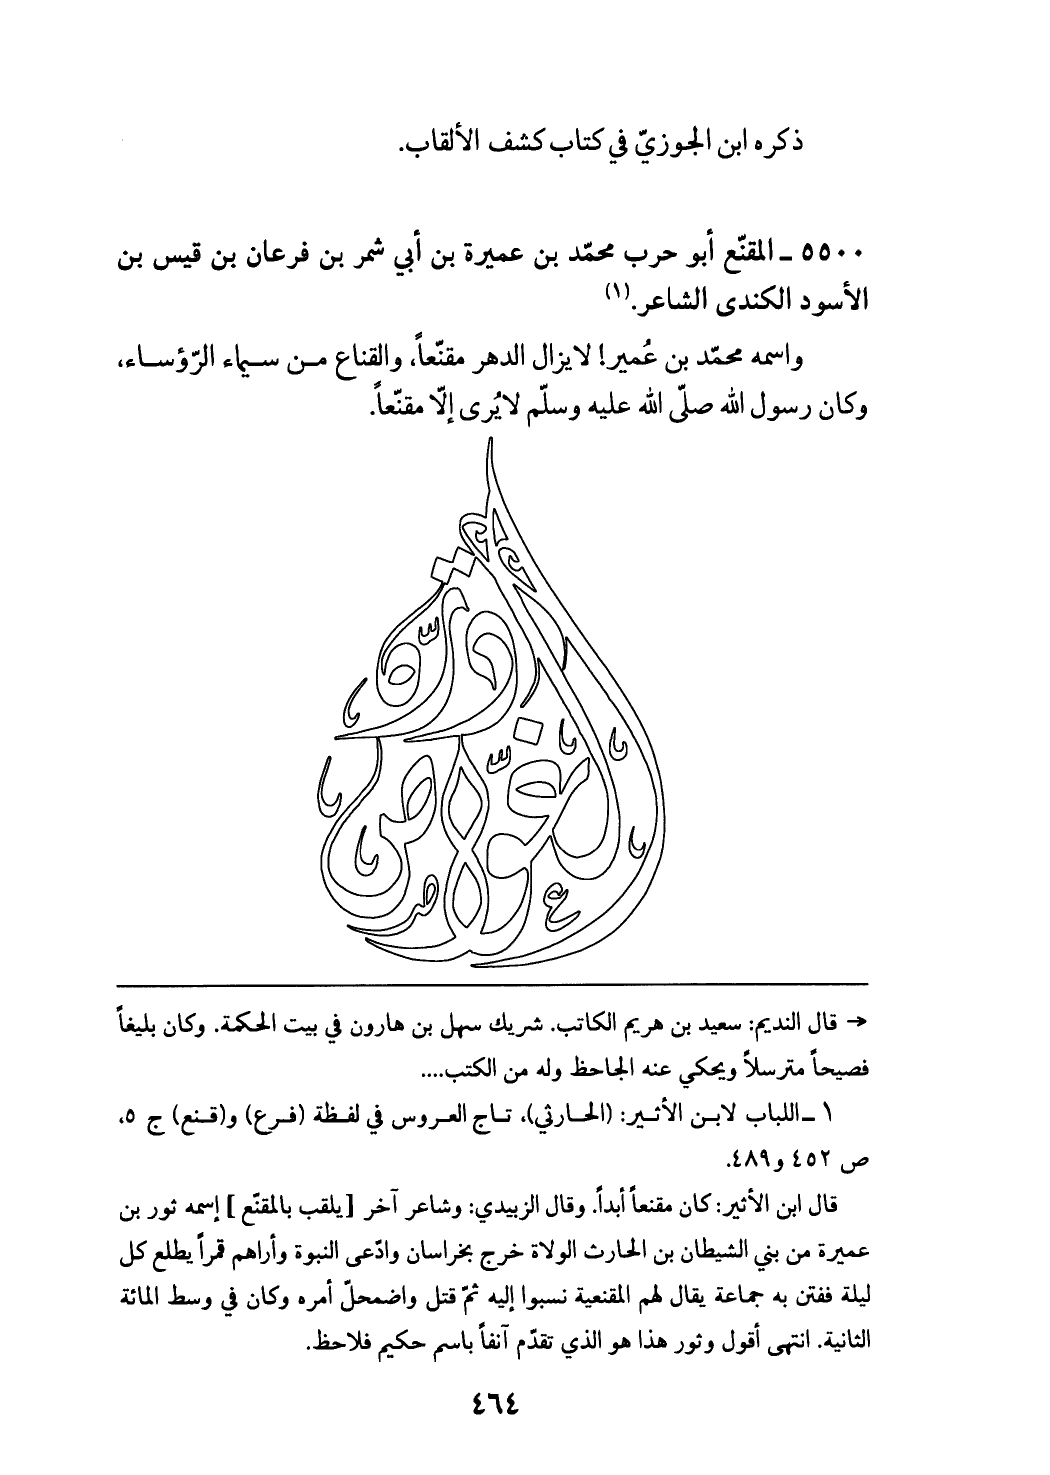 ذكره ابن الجوزيّ في كتاب كشف الألقاب.
٥٥٠٠ ـ المقنّع أبو حرب محمّد بن عميرة بن أبي شمر بن فرعان بن قيس بن
الأسود الكندى الشاعر.(١)
واسمه محمّد بن عُمير! لايزال الدهر مقنّعاً، والقناع مـن سـيماء الرّؤسـاء،
وكان رسول الله صلّى الله عليه وسلّم لايُرى إلّا مقنّعاً.
→ قال النديم: سعيد بن هريم الكاتب. شريك سهل بن هارون في بيت الحكمة. وكان بليغاً
فصيحاً مترسلاً ويحكي عنه الجاحظ وله من الكتب....
١ ـ اللباب لابـن الأثـير: (الحـارثي)، تـاج العـروس في لفـظة (فـرع) و(قـنع) ج ٥،
ص ٤٥٢ و٤٨٩.
قال ابن الأثير: كان مقنعاً أبداً. وقال الزبيدي: وشاعر آخر [يلقب بالمقنّع] إسمه ثور بن
عميرة من بني الشيطان بن الحارث الولاة خرج بخراسان وادّعى النبوة وأراهم قمراً يطلع كل
ليلة ففتن به جماعة يقال لهم المقنعية نسبوا إليه ثمّ قتل واضمحلّ أمره وكان في وسط المائة
الثانية. انتهى أقول وثور هذا هو الذي تقدّم آنفاً باسم حكيم فلاحظ.
٤٦٤